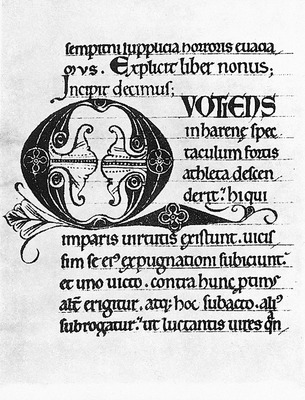 sempitni supplicia horroris euacia
mus. Explicit liber nonus;
Incipit decimus;
QVOTIENS
in harenę spec
taculum fortis
athleta descen
derit: hi qui
imparis uirtutis existunt. uicis
sim se ei' expugnationi subiciunt.
et uno uicto. contra hunc ptinus
alt erigitur. atq; hoc subacto. ali'
subrogatur. ut luctantis uires qn